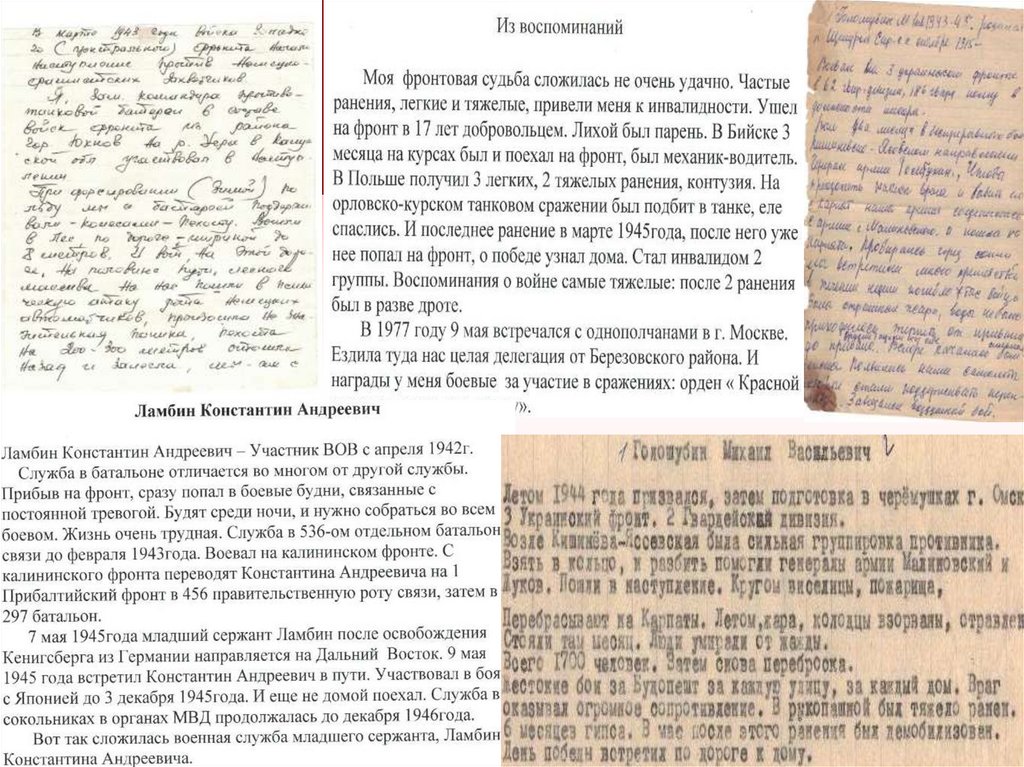 В марте 1943 года войска Запад-
го (Центрального) фронта начали
наступление против немецко-
фашистских захватчиков
Я, зам. командира противо-
танковой батареи в составе
войск фронта из района
гор. Юхнов на р. Угра в Калуж
ской обл участвовал в наступ-
лении
При форсировании (Зимой) по
льду мы с батареей поддержи
вали - колесами - пехоту. Вошли
в лес, по дороге - шириной до
8 метров. И вот, на этой доро-
ге, на половине пути, лесного
массива на нас пошли в психи
ческую атаку рота немецких
автоматчиков, произошла
паника, пехота
на 200-300 метров отошла
назад и залегла, мы с
Из воспоминаний
Моя фронтовая судьба сложилась не очень удачно. Частые
ранения, легкие и тяжелые, привели меня к инвалидности. Ушел
на фронт в 17 лет добровольцем. Лихой был парень. В Бийске 3
месяца на курсах был и поехал на фронт, был механик-водитель.
В Польше получил 3 легких, 2 тяжелых ранения, контузия. На
орловско-курском танковом сражении был подбит в танке, еле
спаслись. И последнее ранение в марте 1945года, после него уже
нее попал на фронт, о победе узнал дома. Стал инвалидом 2
группы. Воспоминания о войне самые тяжелые: после 2 ранения
был в разве дроте.
В 1977 году 9 мая встречался с однополчанами в г. Москве.
Ездила туда нас целая делегация от Березовского района. И
награды у меня боевые за участие в сражениях: орден « Красной
».
Голошубин М 1943-45
Воевал на 3 украинском фронте
в 62 гвар-дивизии, 186 гвард полку в
должности
Был два месяца в
Кишинёво-Ясском направлении
армии
армия
с армией Малиновского
Пробирались через
встретили
Была страшная жара, воды не было
приходилось терпеть от привала
до привала. Вскоре
Появились наши самолеты
стали поддерживать
Завязался воздушный бой.
Ламбин Константин Андреевич
Ламбин Константин Андреевич – Участник ВОВ с апреля 1942г.
Служба в батальоне отличается во многом от другой службы.
Прибыв на фронт, сразу попал в боевые будни, связанные с
постоянной тревогой. Будят среди ночи, и нужно собраться во всем
боевом. Жизнь очень трудная. Служба в 536-ом отдельном батальон
связи до февраля 1943года. Воевал на калининском фронте. С
калининского фронта переводят Константина Андреевича на 1
Прибалтийский фронт в 456 правительственную роту связи, затем в
297 батальон.
7 мая 1945года младший сержант Ламбин после освобождения
Кенигсберга из Германии направляется на Дальний Восток. 9 мая
1945 года встретил Константин Андреевич в пути. Участвовал в боя
с Японией до 3 декабря 1945года. И еще не домой поехал. Служба в
сокольниках в органах МВД продолжалась до декабря 1946года.
Вот так сложилась военная служба младшего сержанта, Ламбин
Константина Андреевича.
1 Голошубин Михаил Васильевич 2
Летом 1944 года призвался, затем подготовка в черёмушках г. Омск
3 Украинский фронт. 2 Гвардейская дивизия.
Возле Кишинёва-Яссевская была сильная группировка противника.
Взять в кольцо, и разбить помогли генералы армии Малиновский и
Жуков. Пошли в наступление. Кругом виселицы, пожарища,
Перебрасывают на Карпаты. Летом,жара, колодцы взорваны, отравлен
Стояли там месяц. Люди умирали от жажды.
Всего 1700 человек. Затем снова переброска.
Жестокие бои за Будопешт за каждую улицу, за каждый дом. Враг
оказывал огромное сопротивление. В рукопанной был тяжело ранен.
6 месяцев гипса. В мае после этого ранения был демобилизован.
День победы встретил по дороге к дому.